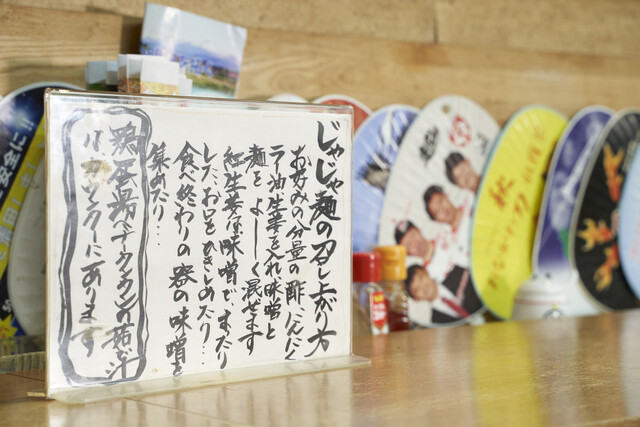 じゃじゃ麺の召し上がり方
お好みの分量の酢、にんにく
ラー油生姜を入れ味噌と
麺を よーく混ぜます
紅生姜は味噌で、まったり
した、お口をひきしめたり…
食べ終わりの器の味噌を
集めたり…
鶏蛋湯
はカウンターにあります
安全に!!